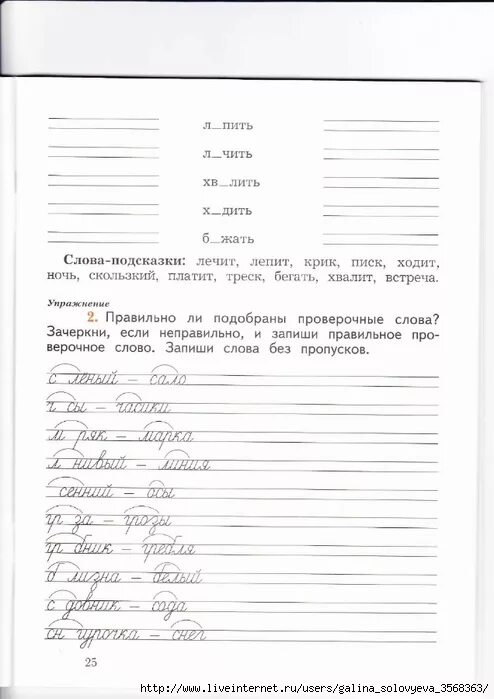 л_пить
л_чить
хв_лить
х_дить
б_жать
Слова-подсказки: лечит, лепит, крик, писк, ходит,
ночь, скользкий, платит, треск, бегать, хвалит, встреча.
Упражнение
2. Правильно ли подобраны проверочные слова?
Зачеркни, если неправильно, и запиши правильное про-
верочное слово. Запиши слова без пропусков.
с_леный – сало
ч_сы – часики
м_ряк – марка
л_нивый – линия
_сенний – осы
гр_за – грозы
гр_бник – гребля
б_лизна – белый
с_довник – сода
сн_гурочка – снег
25
http://www.liveinternet.ru/users/galina_solovyeva_3568363/